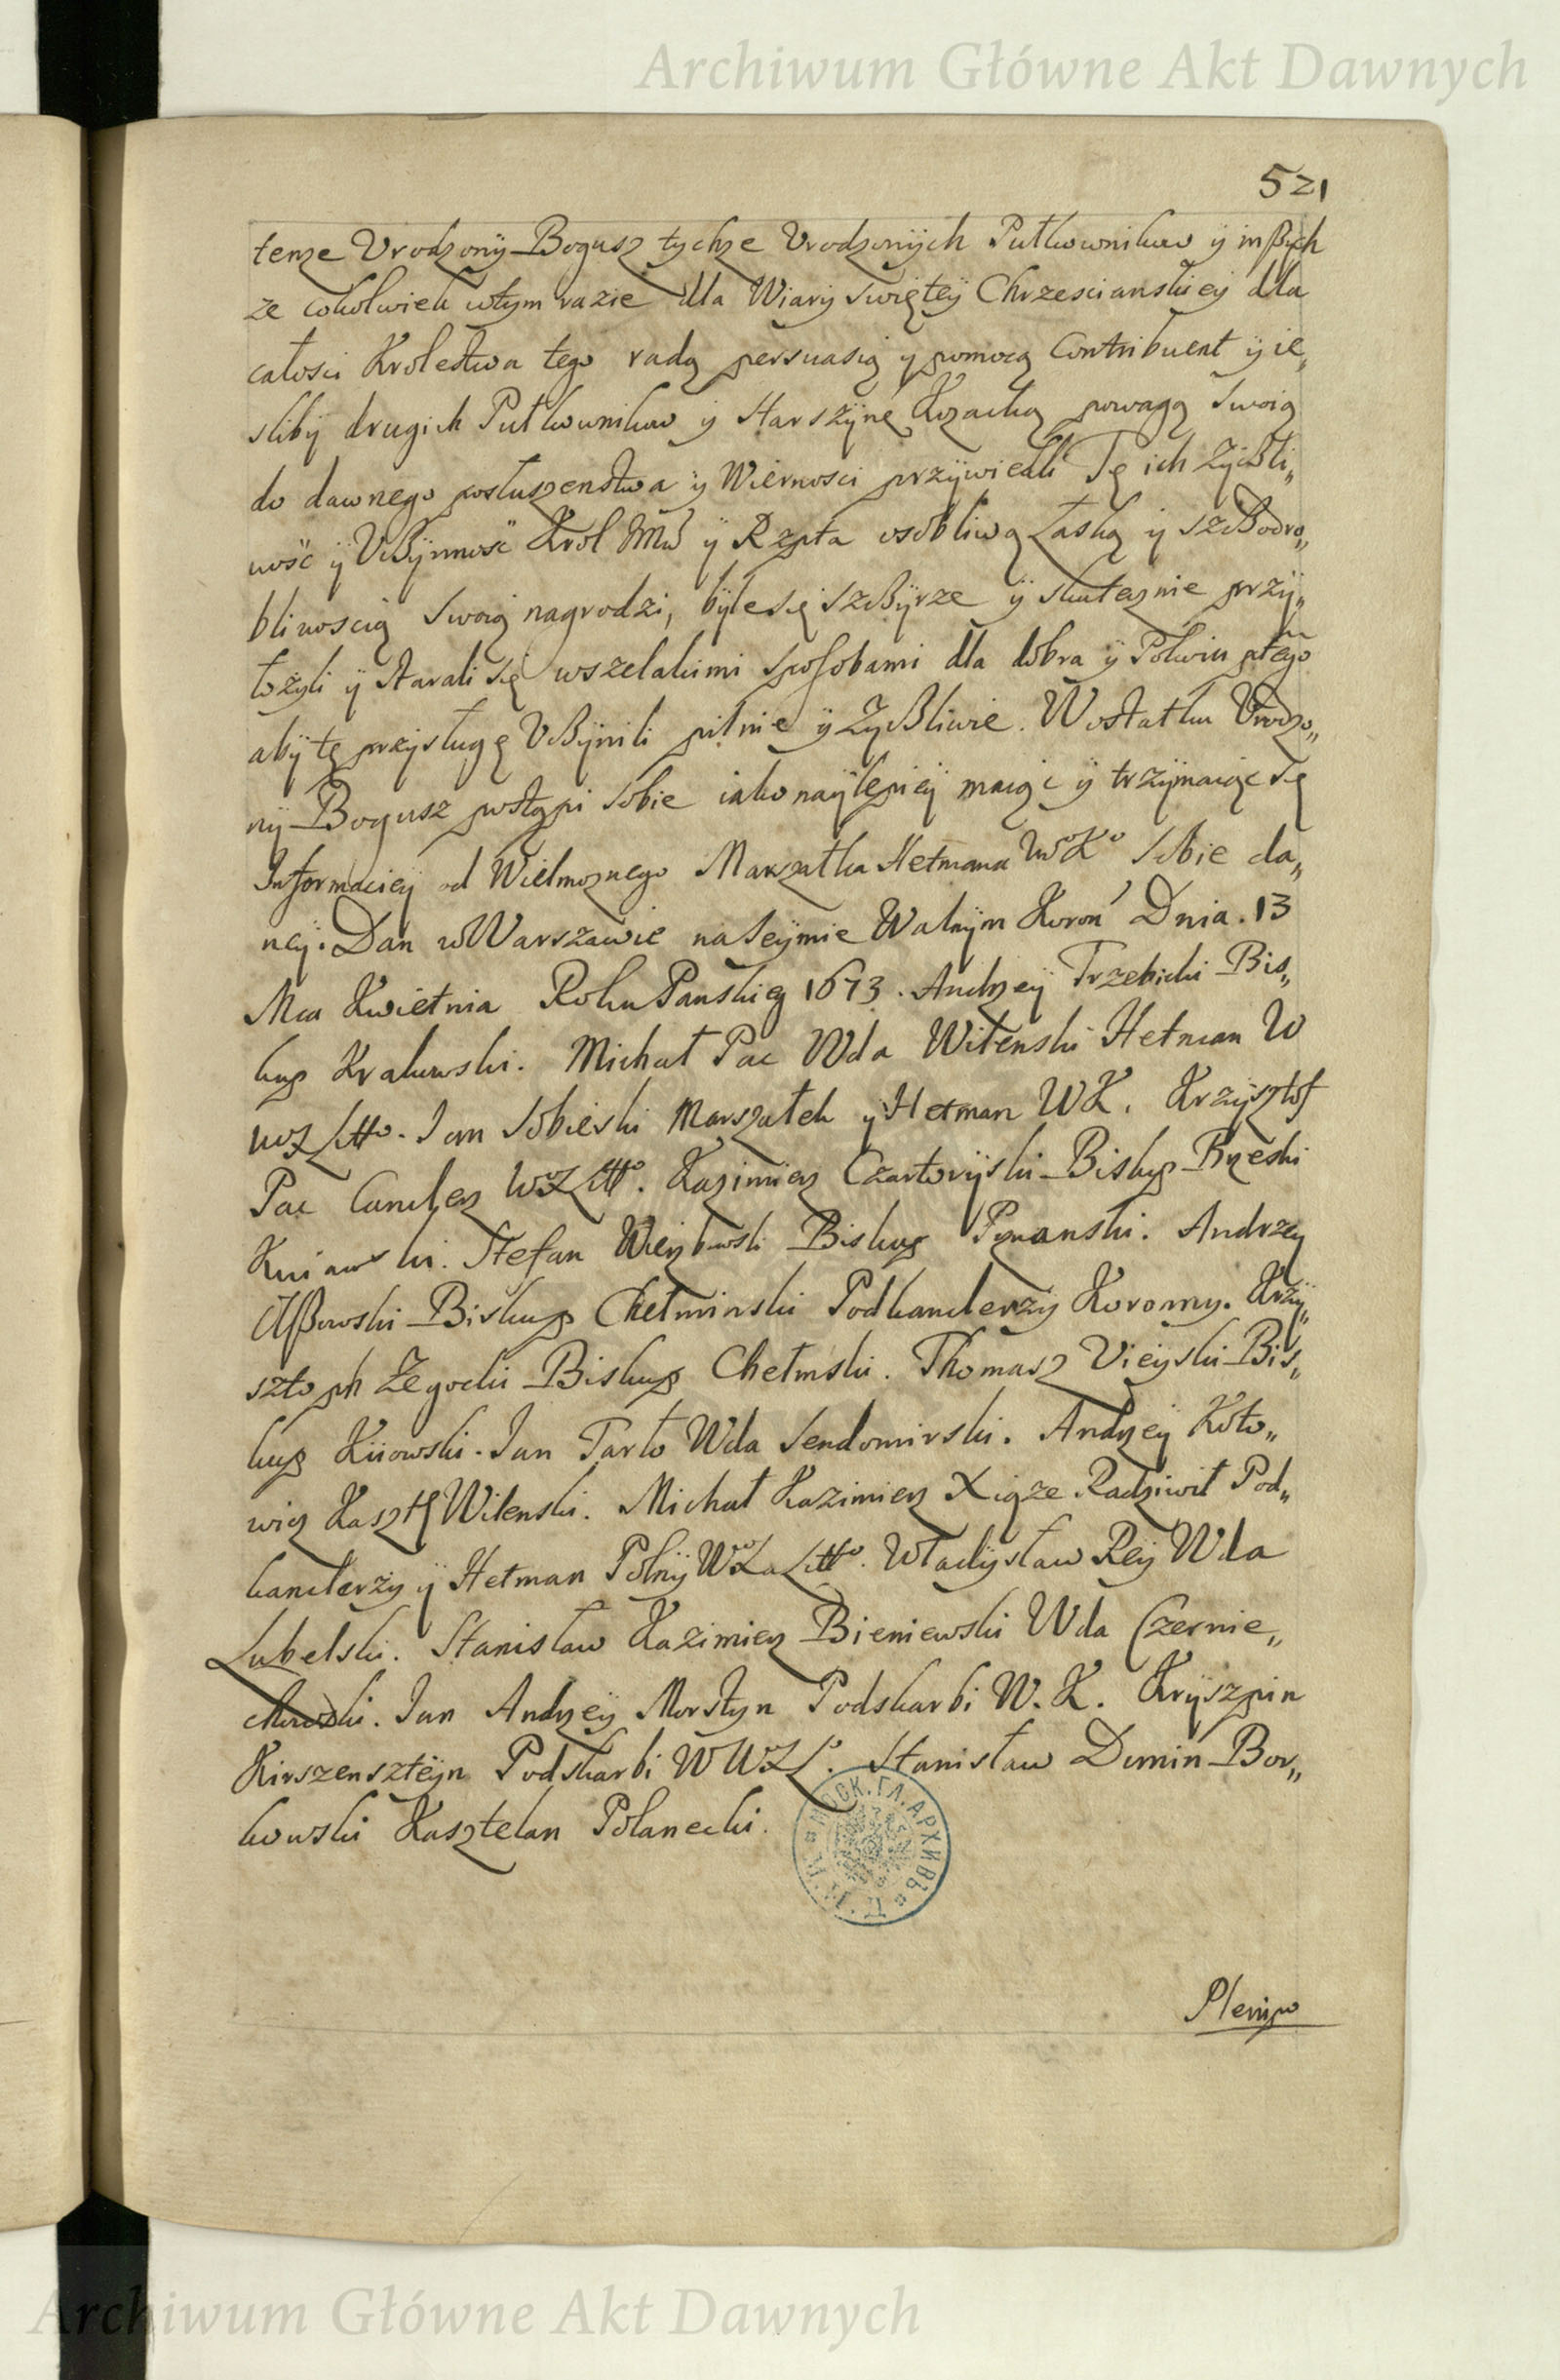 Archiwum Główne Akt Dawnych
521
tenze Vrodzonÿ Bogusz tychze Vrodzonÿch Pułkownikow ÿ inßych
ze cokolwiek wtym razie dla Wiarÿ swiętey Chrzescianskiey dla
całosci Krolestwa tego radą persuasią y pomocą Contribuent ÿ ie„
slibÿ drugich Pułkownikow ÿ Starszÿnę Kozacką powagą swoią
do dawnego posłuszenstwa ÿ Wiernosci przÿwiedli Tę ich Zÿczli„
wośc ÿ Vczÿnnośc Krol Mśc ÿ Rzpta osobliwą Łaską ÿ szczodro„
bliwoscią swoią nagrodzi, bÿle się szczÿrze ÿ skutecznie przÿ„
łożyli ÿ starali się wszelakimi sposobami dla dobra ÿ Pokoiu
abÿ tę przysługę Vczÿnili pilnie ÿ Zyczliwie. Wostatku Vrodzo„
nÿ Bogusz postąpi sobie iako naÿlepieÿ maiąc ÿ trzÿmaiąc się
Informaciey od Wielmoznego Marszałka Hetmana WoKo sobie da„
ney. Dan w Warszawie na Seÿmie Walnÿm Koron Dnia. 13
Mca Kwietnia Roku Panskieg 1673. Andrzeÿ Trzebicki Bis„
kup Krakowski. Michał Pac Wda Wilenski Hetman W
WoXLitto. Jan Sobieski Marszałek ÿ Hetman WK. Krzÿsztof
Pac Canclerz WoXLitto. Kazimierz Czartorÿski Biskup Brzeski
Kuiawski. Stefan Wierzbowski Biskup Poznanski. Andrzey
Olßowski Biskup Chełminski Podkanclerzÿ Koronny. Krzÿ„
sztoph Żegocki Biskup Chełmski. Thomasz Vieÿski Bis„
kup Kiiowski. Jan Tarło Wda Sendomirski. Andrzeÿ Koto„
wicz Kasztl Wilenski. Michał Kazimierz Xiąze Radziwił Pod„
kanclerzÿ ÿ Hetman PolnÿWoXaLitto. Władÿsław Reÿ Wda
Lubelski. Stanisław Kazimierz Bieniewski Wda Czernie„
chowski. Jan Andrzeÿ Morsztyn Podskarbi W. K. Krÿszpin
Kirszenszteÿn Podskarbi W WoXL. Stanisław Dunin Bor„
kowski Kasztelan Polanecki.
МОСК.ГЛ.АРХИВЪ
Plenipo
Archiwum Główne Akt Dawnych